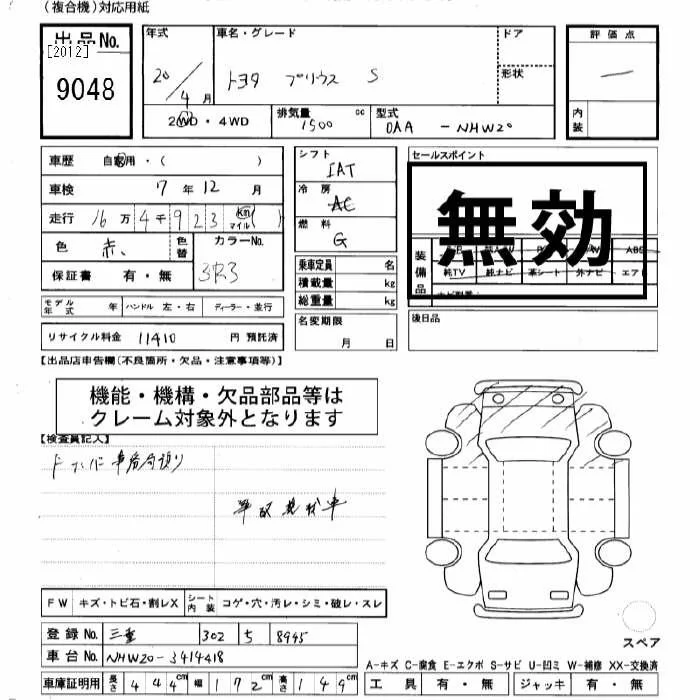 (複合機)対応用紙
出品No.
[2012]
9048
年式
20/4月
車名・グレード
トヨタ プリウス S
ドア
形状
評価点
一
内装
2WD・4WD
排気量
1500 cc
型式
DAA -NHW20
車歴 自家用・( )
車検 7年12月
走行 16万4千923 km マイル( )
色 赤
色替
カラーNo.
3R3
保証書 有・無
モデル年式 年 ハンドル 左・右 ディーラー・並行
リサイクル料金 11410 円 預託済
シフト
IAT
冷房
AC
燃料
G
乗車定員 名
積載量 kg
総重量 kg
名変期限
月 日
セールスポイント
無効
装備品
ABS
純TV 純ナビ 革シート 外ナビ エアB
後日品
【出品店車告欄(不良箇所・欠品・注意事項等)】
機能・機構・欠品部品等は
クレーム対象外となります
【検査員記入】
FW キズ・トビ石・割レX シート内装 コゲ・穴・汚レ・シミ・破レ・スレ
登録No. 三重 302 ち 8945
車台No. NHW20-3414418
車庫証明用 長さ 444cm 幅 172cm 高さ 149cm
スペア
A-キズ C-腐食 E-エクボ S-サビ U-凹ミ W-補修 XX-交換済
工具 有・無 ジャッキ 有・無